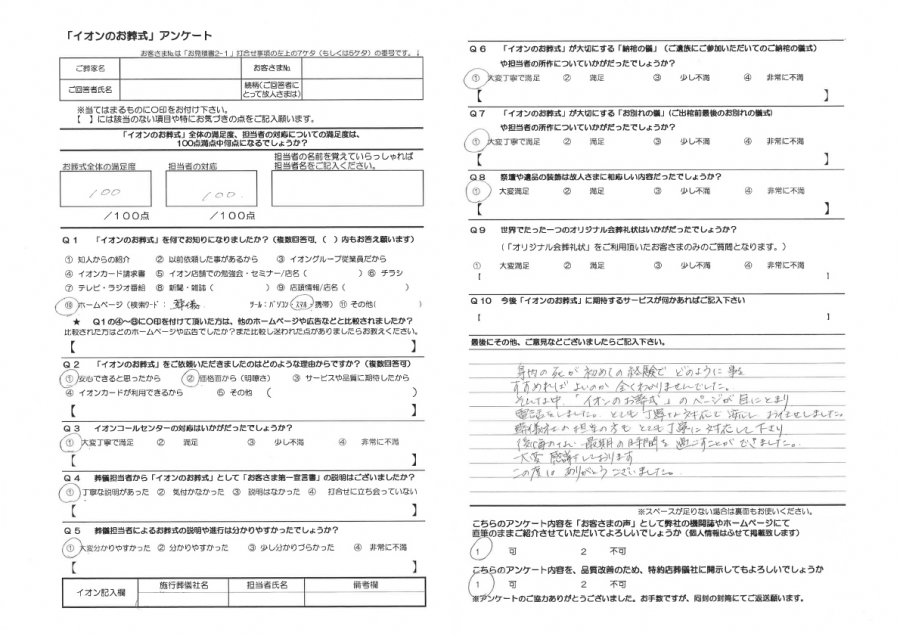 「イオンのお葬式」アンケート
お客さま№は「お見積書2-1」打合せ事項の左上の7ケタ（もしくは5ケタ）の番号です。↓
ご葬家名
お客さま№
ご回答者氏名
続柄（ご回答者に
とって故人さまは）
※当てはまるものに○印をお付け下さい。
【 】には該当のない項目や特にお気づきの点をご記入願います。
「イオンのお葬式」全体の満足度、担当者の対応についての満足度は、
100点満点中何点になるでしょうか？
お葬式全体の満足度
担当者の対応
担当者の名前を覚えていらっしゃれば
担当者名をご記入ください。
100
100
／100点
／100点
Q１ 「イオンのお葬式」を何でお知りになりましたか？（複数回答可、（ ）内もお答え願います）
① 知人からの紹介 ② 以前依頼した事があるから ③ イオングループ従業員だから
④ イオンカード請求書 ⑤ イオン店舗での勉強会・セミナー/店名（ ）⑥ チラシ
⑦ テレビ・ラジオ番組 ⑧ 新聞・雑誌（ ）⑨ 店頭情報/店名（ ）
⑩ ホームページ（検索ワード： 葬儀 ツール：パソコン・スマホ・携帯）⑪ その他（ ）
★ Q1の④～⑧に○印を付けて頂いた方は、他のホームページや広告などと比較されましたか？
比較された方はどのホームページや広告でしたか？また比較し迷われた点がありましたらお教えください。
【 】
Q２ 「イオンのお葬式」をご依頼いただきましたのはどのような理由からですか？（複数回答可）
① 安心できると思ったから ② 価格面から（明瞭さ） ③ サービスや品質に期待したから
④ イオンカードが利用できるから ⑤ その他（ ）
【 】
Q３ イオンコールセンターの対応はいかがだったでしょうか？
① 大変丁寧で満足 ② 満足 ③ 少し不満 ④ 非常に不満
【 】
Q４ 葬儀担当者から「イオンのお葬式」として「お客さま第一宣言書」の説明はございましたか？
① 丁寧な説明があった ② 気付かなかった ③ 説明はなかった ④ 打合せに立ち会っていない
【 】
Q５ 葬儀担当者によるお葬式の説明や進行は分かりやすかったでしょうか？
① 大変分かりやすかった ② 分かりやすかった ③ 少し分かりづらかった ④ 非常に不満
【 】
イオン記入欄
施行葬儀社名
担当者氏名
備考欄
Q６ 「イオンのお葬式」が大切にする「納棺の儀」（ご遺族にご参加いただいてのご納棺の儀式）
や担当者の所作についていかがだったでしょうか？
① 大変丁寧で満足 ② 満足 ③ 少し不満 ④ 非常に不満
【 】
Q７ 「イオンのお葬式」が大切にする「お別れの儀」（ご出棺前最後のお別れの儀式）
や担当者の所作についていかがだったでしょうか？
① 大変丁寧で満足 ② 満足 ③ 少し不満 ④ 非常に不満
【 】
Q８ 祭壇や遺品の装飾は故人さまに相応しい内容だったでしょうか？
① 大変満足 ② 満足 ③ 少し不満 ④ 非常に不満
【 】
Q９ 世界でたった一つのオリジナル会葬礼状はいかがだったでしょうか？
（「オリジナル会葬礼状」をご利用頂いたお客さまのみのご質問となります。）
① 大変満足 ② 満足 ③ 少し不満 ④ 非常に不満
【 】
Q１０ 今後「イオンのお葬式」に期待するサービスが何かあればご記入下さい
【 】
最後にその他、ご意見などございましたらご記入下さい。
身内の死が初めての経験で どのように 事を
すすめれば よいのか 全くわかりませんでした。
そんな中、「イオンのお葬式」のページが目にとまり
電話をしました。とても丁寧な対応で 安心し お任せしました。
葬儀社の担当の方も とても丁寧に 対応して下さり
後悔のない 最期の時間を 過ごすことが できました。
大変 感謝しております
この度は ありがとうございました。
※スペースが足りない場合は裏面もお使いください。
こちらのアンケート内容を「お客さまの声」として弊社の機関誌やホームページにて
直筆のままご紹介させていただいてよろしいでしょうか（個人情報はふせて掲載致します）
1 可 2 不可
こちらのアンケート内容を、品質改善のため、特約店葬儀社に開示してもよろしいでしょうか
1 可 2 不可
※アンケートのご協力ありがとうございました。お手数ですが、同封の封筒にてご返送願います。